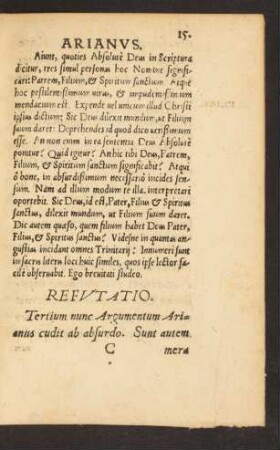 15.
ARIANVS.
Aiunt, quoties Absolutè Deus in Scriptura
dicitur, tres simul personas hoc Nomine signifi-
cari: Patrem, Filium, & Spiritum sanctum. Atqui
hoc pestilentissimum virus, & impudentissimum
mendacium est. Expende vel unicum illud Christi
ipsius dictum: Sic Deus dilexit mundum, ut Filium
suum daret: Deprehendes id quod dico verissimum
esse. An non enim in ea sententia Deus Absolutè
ponitur? Quid igitur? An hic tibi Deus, Patrem,
Filium, & Spiritum sanctum significabit? Atqui
ô bone, in absurdissimum necessariò incides sen-
sum. Nam ad illum modum te illa interpretari
oportebit. Sic Deus, id est, Pater, Filius & Spiritus
sanctus, dilexit mundum, ut Filium suum daret.
Dic autem quæso, quem filium habet Deus Pater,
Filius, & Spiritus sanctus? Videsne in quantas an-
gustias incidant omnes Trinitarij? Innumeri sunt
in sacris literis loci huic similes, quos ipse lector fa-
cilè observabit. Ego brevitati studeo.
REFVTATIO.
Tertium nunc Argumentum Ari-
anus cudit ab absurdo. Sunt autem
C mera